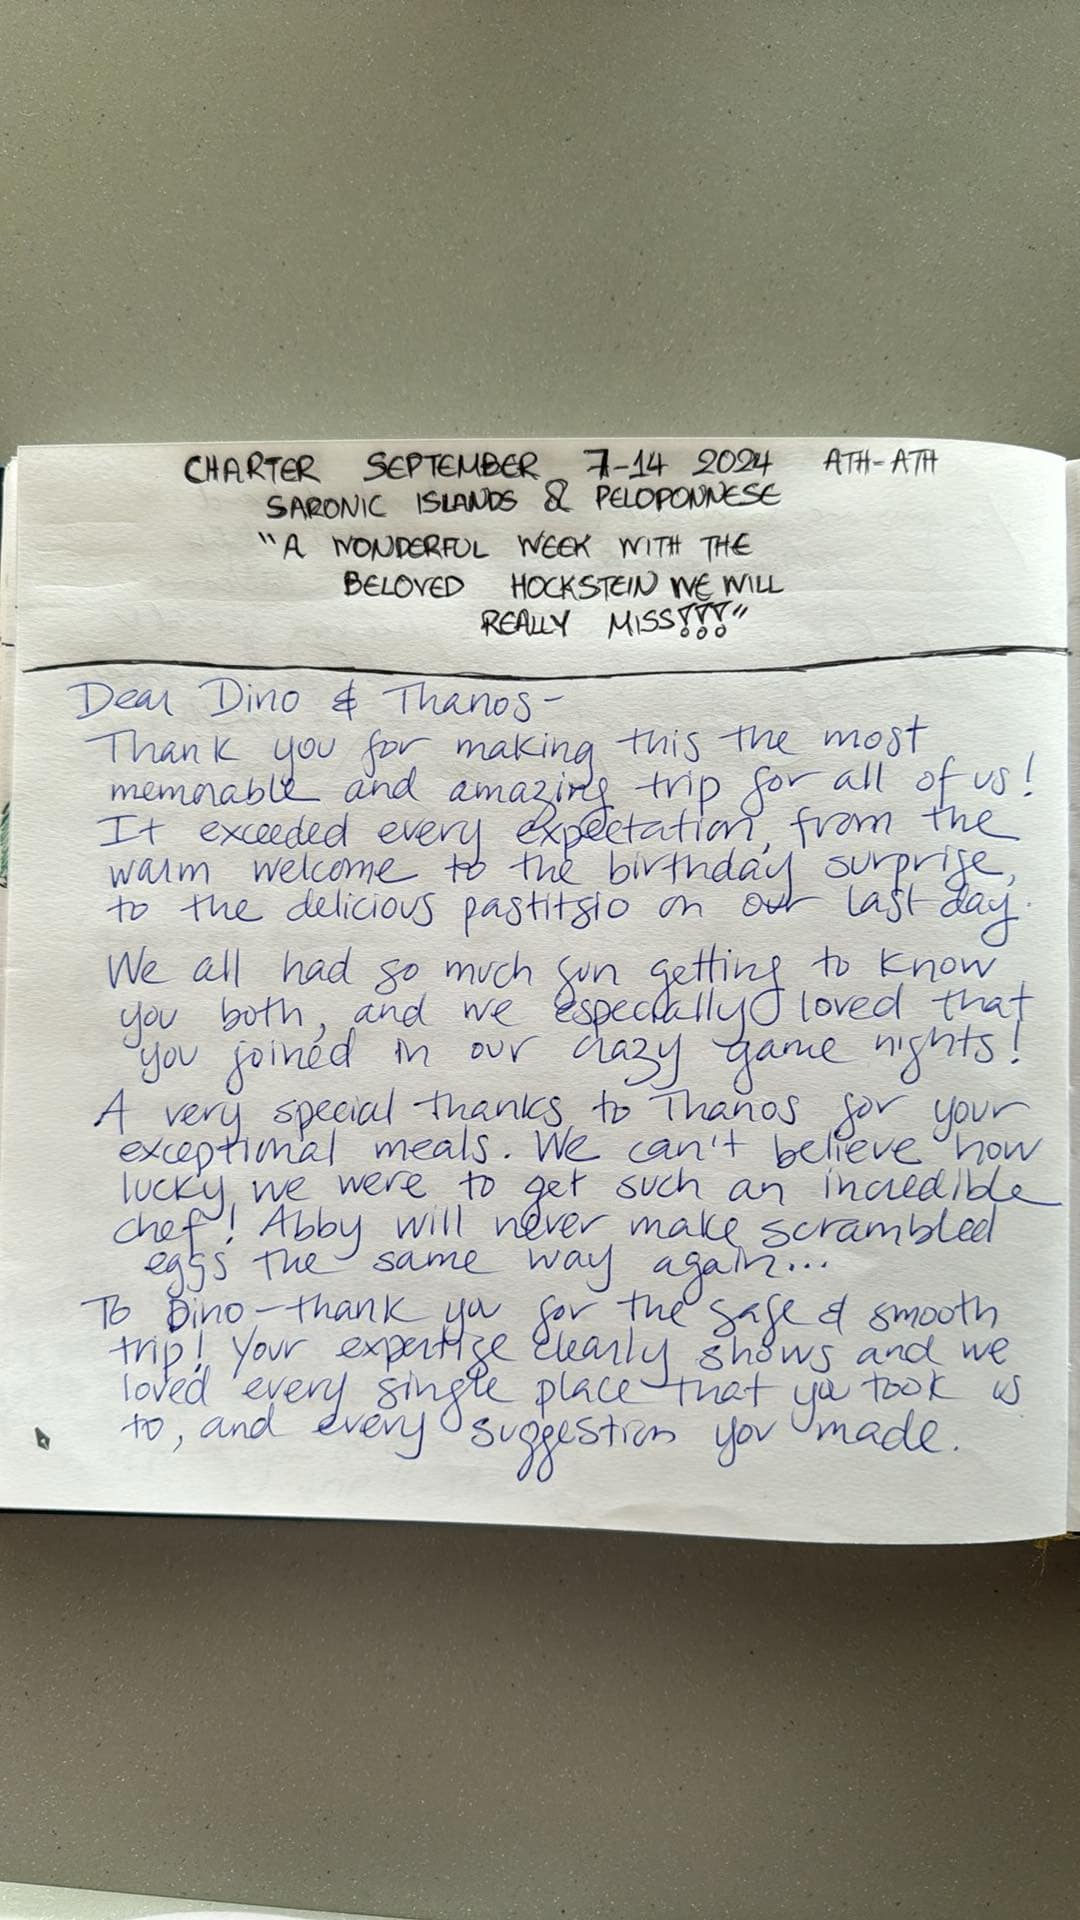 CHARTER SEPTEMBER 7-14 2024 ATH-ATH
SARONIC ISLANDS & PELOPONNESE
"A WONDERFUL WEEK WITH THE
BELOVED HOCKSTEIN WE WILL
REALLY MISS!!!"
Dear Dino & Thanos-
Thank you for making this the most
memorable and amazing trip for all of us!
It exceeded every expectation, from the
warm welcome to the birthday surprise,
to the delicious pastitsio on our last day.
We all had so much fun getting to know
you both, and we especially loved that
you joined in our crazy game nights!
A very special thanks to Thanos for your
exceptional meals. We can't believe how
lucky we were to get such an incredible
chef! Abby will never make scrambled
eggs the same way again...
To Dino-thank you for the safe & smooth
trip! Your expertise clearly shows and we
loved every single place that you took us
to, and every suggestion you made.